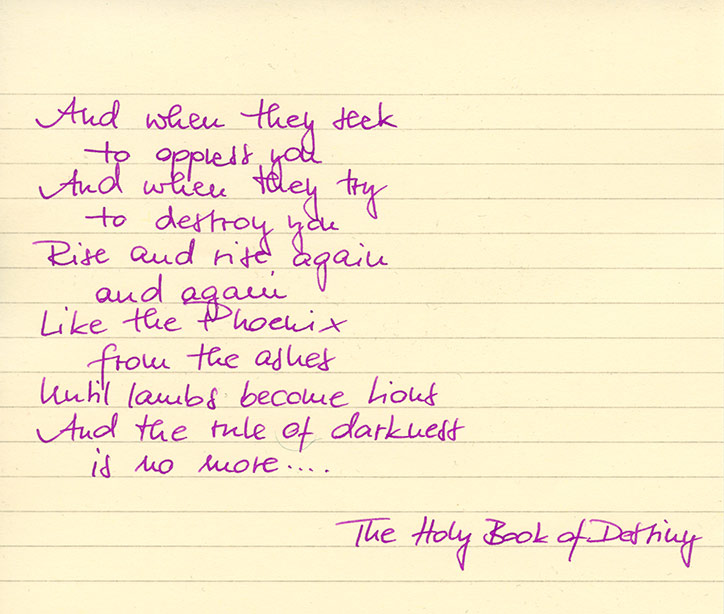 And when they seek
to oppress you
And when they try
to destroy you
Rise and rise again
and again
Like the Phoenix
from the ashes
Until lambs become Lions
And the rule of darkness
is no more....
The Holy Book of Destiny